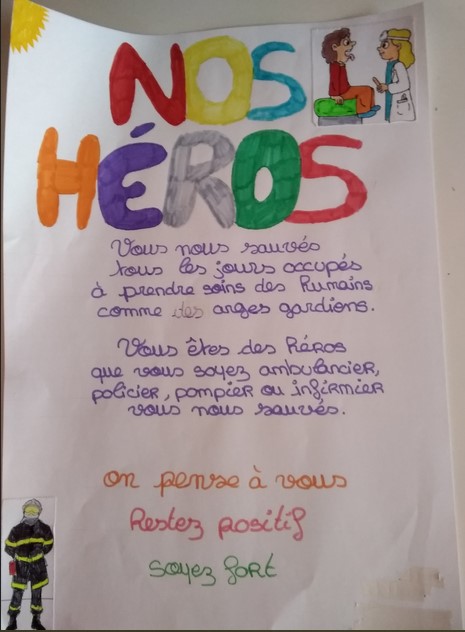 NOS
HÉROS
Vous nous sauvés
tous les jours occupés
à prendre soins des humains
comme des anges gardions.
Vous êtes des héros
que vous soyez ambulancier,
policier, pompier ou infirmier
vous nous sauvés.
on pense à vous
Restez positif
soyez fort